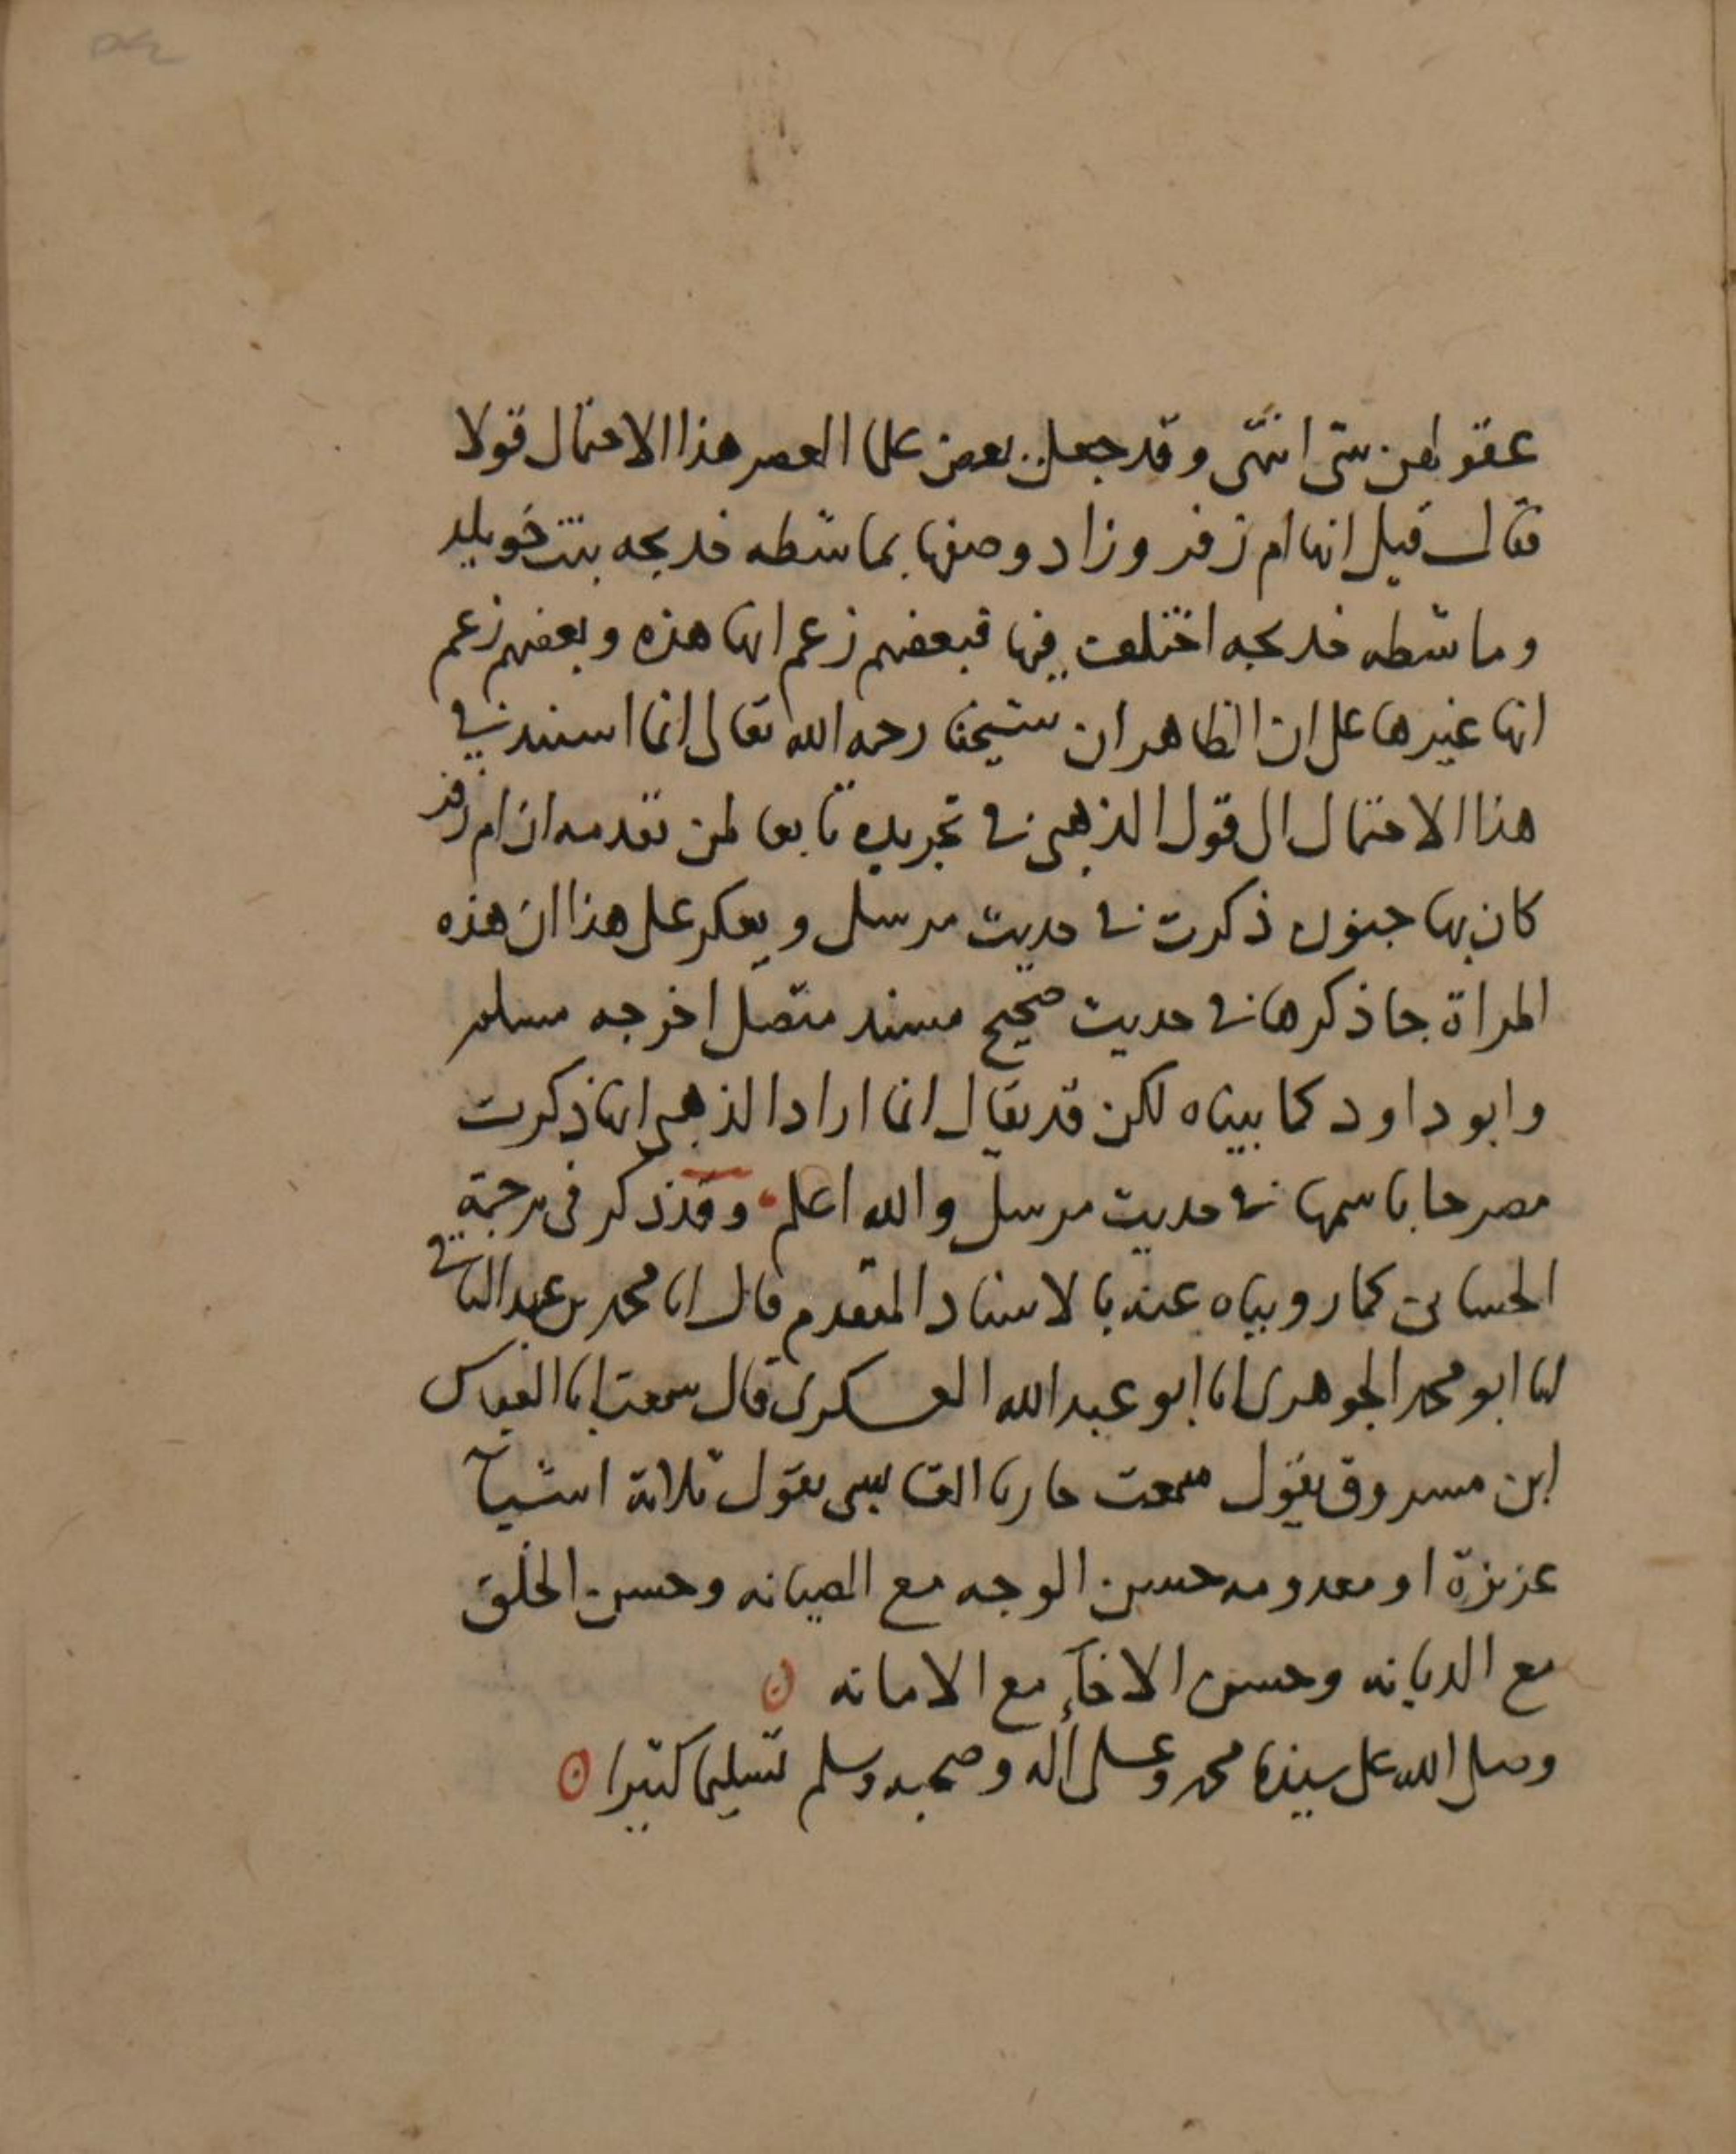 عقولهن شى انتهى وقد جعل بعض علما العصر هذا الاحتمال قولا
فقال قيل انها ام زفر وزاد وصفها بماشطه خديجه بنت خويلد
وماشطه خديجه اختلف فيها فبعضهم زعم انها هذه وبعضهم زعم
انها غيرها على ان الظاهر ان شيخنا رحمه الله تعالى انما استند في
هذا الاحتمال الى قول الذهبي في تجريده تابعا لمن تقدمه ان ام زفر
كان بها جنون ذكرت في حديث مرسل ويعكر على هذا ان هذه
المراة جا ذكرها في حديث صحيح مسند متصل اخرجه مسلم
وابو داود كما بيناه لكن قد يقال انما اراد الذهبي انها ذكرت
مصرحا باسمها في حديث مرسل والله اعلم وقد ذكر في ترجمة
الحسا كما رويناه عنه بالاسناد المتقدم قال انا محمد بن عبد الباقي
انا ابو محمد الجوهري انا ابو عبد الله العسكري قال سمعت ابا العباس
ابن مسروق يقول سمعت يقول ثلاثة اشيآ
عزيزة او معدومه حسن الوجه مع الصيانه وحسن الخلق
مع الديانه وحسن الاخآء مع الامانه
وصلى الله على سيدنا محمد وعلى اله وصحبه وسلم تسليما كثيرا